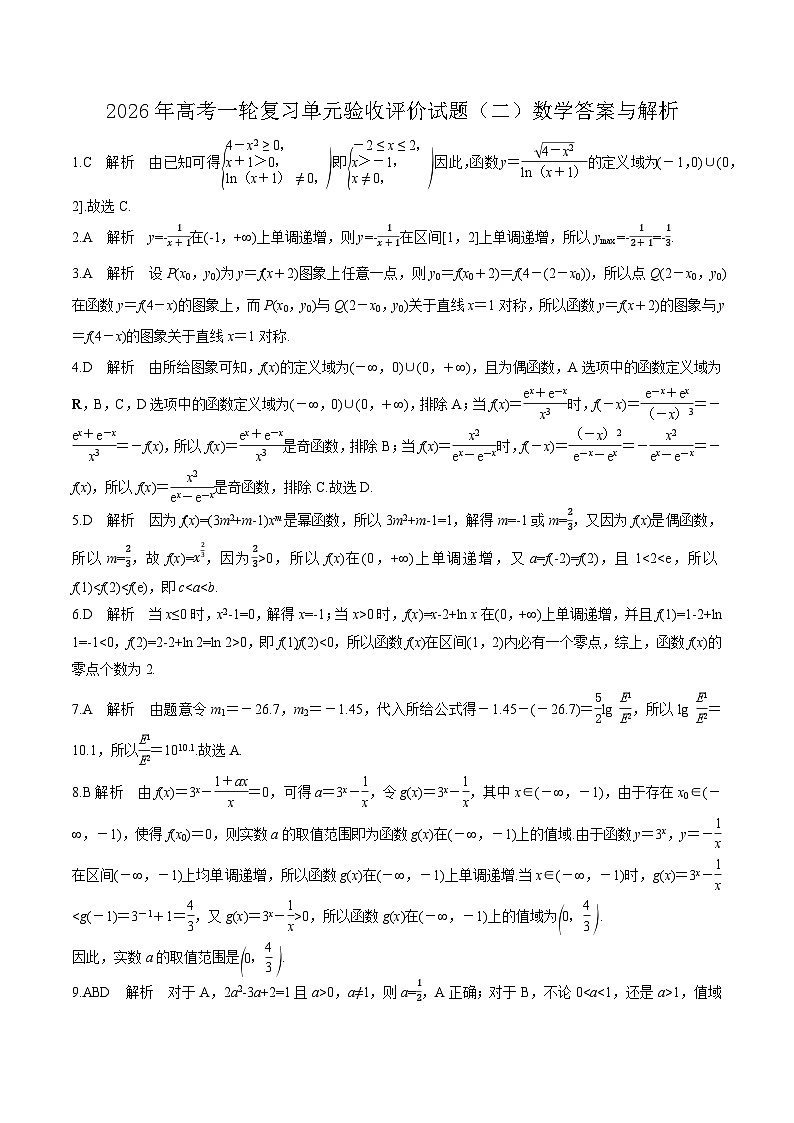 2026年高考一轮复习单元验收评价试题（二）数学答案与解析
1.C 解析 由已知可得{4－x²≥0，x＋1＞0，ln（x＋1）≠0，)即{－2≤x≤2，x＞－1，x≠0，)因此,函数y＝√(4－x²)/ln（x＋1）的定义域为(－1,0)∪(0,
2].故选C.
2.A 解析 y=-1/(x+1)在(-1，+∞)上单调递增，则y=-1/(x+1)在区间[1，2]上单调递增，所以ymax=-1/(2+1)=-1/3.
3.A 解析 设P(x₀，y₀)为y＝f(x＋2)图象上任意一点，则y₀＝f(x₀＋2)＝f(4－(2－x₀))，所以点Q(2－x₀，y₀)
在函数y＝f(4－x)的图象上，而P(x₀，y₀)与Q(2－x₀，y₀)关于直线x＝1对称，所以函数y＝f(x＋2)的图象与y
＝f(4－x)的图象关于直线x＝1对称.
4.D 解析 由所给图象可知，f(x)的定义域为(－∞，0)∪(0，＋∞)，且为偶函数，A选项中的函数定义域为
R，B，C，D选项中的函数定义域为(－∞，0)∪(0，＋∞)，排除A；当f(x)＝(eˣ＋e⁻ˣ)/x³时，f(－x)＝(e⁻ˣ＋eˣ)/（－x）³＝－
(eˣ＋e⁻ˣ)/x³＝－f(x)，所以f(x)＝(eˣ＋e⁻ˣ)/x³是奇函数，排除B；当f(x)＝x²/(eˣ－e⁻ˣ)时，f(－x)＝（－x）²/(e⁻ˣ－eˣ)＝－x²/(eˣ－e⁻ˣ)＝－
f(x)，所以f(x)＝x²/(eˣ－e⁻ˣ)是奇函数，排除C.故选D.
5.D 解析 因为f(x)=(3m²+m-1)xᵐ是幂函数，所以3m²+m-1=1，解得m=-1或m=2/3，又因为f(x)是偶函数，
所以m=2/3，故f(x)=x^(2/3)，因为2/3>0，所以f(x)在(0，+∞)上单调递增，又a=f(-2)=f(2)，且1<2<e，所以
f(1)<f(2)<f(e)，即c<a<b.
6.D 解析 当x≤0时，x²-1=0，解得x=-1；当x>0时，f(x)=x-2+ln x在(0，+∞)上单调递增，并且f(1)=1-2+ln
1=-1<0，f(2)=2-2+ln 2=ln 2>0，即f(1)f(2)<0，所以函数f(x)在区间(1，2)内必有一个零点，综上，函数f(x)的
零点个数为2.
7.A 解析 由题意令m₁＝－26.7，m₂＝－1.45，代入所给公式得－1.45－(－26.7)＝5/2lg E1/E2，所以lg E1/E2＝
10.1，所以E1/E2＝10¹⁰·¹.故选A.
8.B解析 由f(x)＝3ˣ－(1＋ax)/x＝0，可得a＝3ˣ－1/x，令g(x)＝3ˣ－1/x，其中x∈(－∞，－1)，由于存在x₀∈(－
∞，－1)，使得f(x₀)＝0，则实数a的取值范围即为函数g(x)在(－∞，－1)上的值域.由于函数y＝3ˣ，y＝－1/x
在区间(－∞，－1)上均单调递增，所以函数g(x)在(－∞，－1)上单调递增.当x∈(－∞，－1)时，g(x)＝3ˣ－1/x
<g(－1)＝3⁻¹＋1＝4/3，又g(x)＝3ˣ－1/x>0，所以函数g(x)在(－∞，－1)上的值域为(0，4/3).
因此，实数a的取值范围是(0，4/3).
9.ABD 解析 对于A，2a²-3a+2=1且a>0，a≠1，则a=1/2，A正确；对于B，不论0<a<1，还是a>1，值域